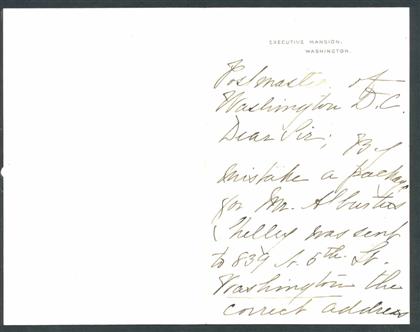 EXECUTIVE MANSION,
WASHINGTON.
Postmaster of
Washington D.C.
Dear Sir; By
mistake a package
for Mr.
was sent
to 839 N. 6th. St.
Washington the
correct address